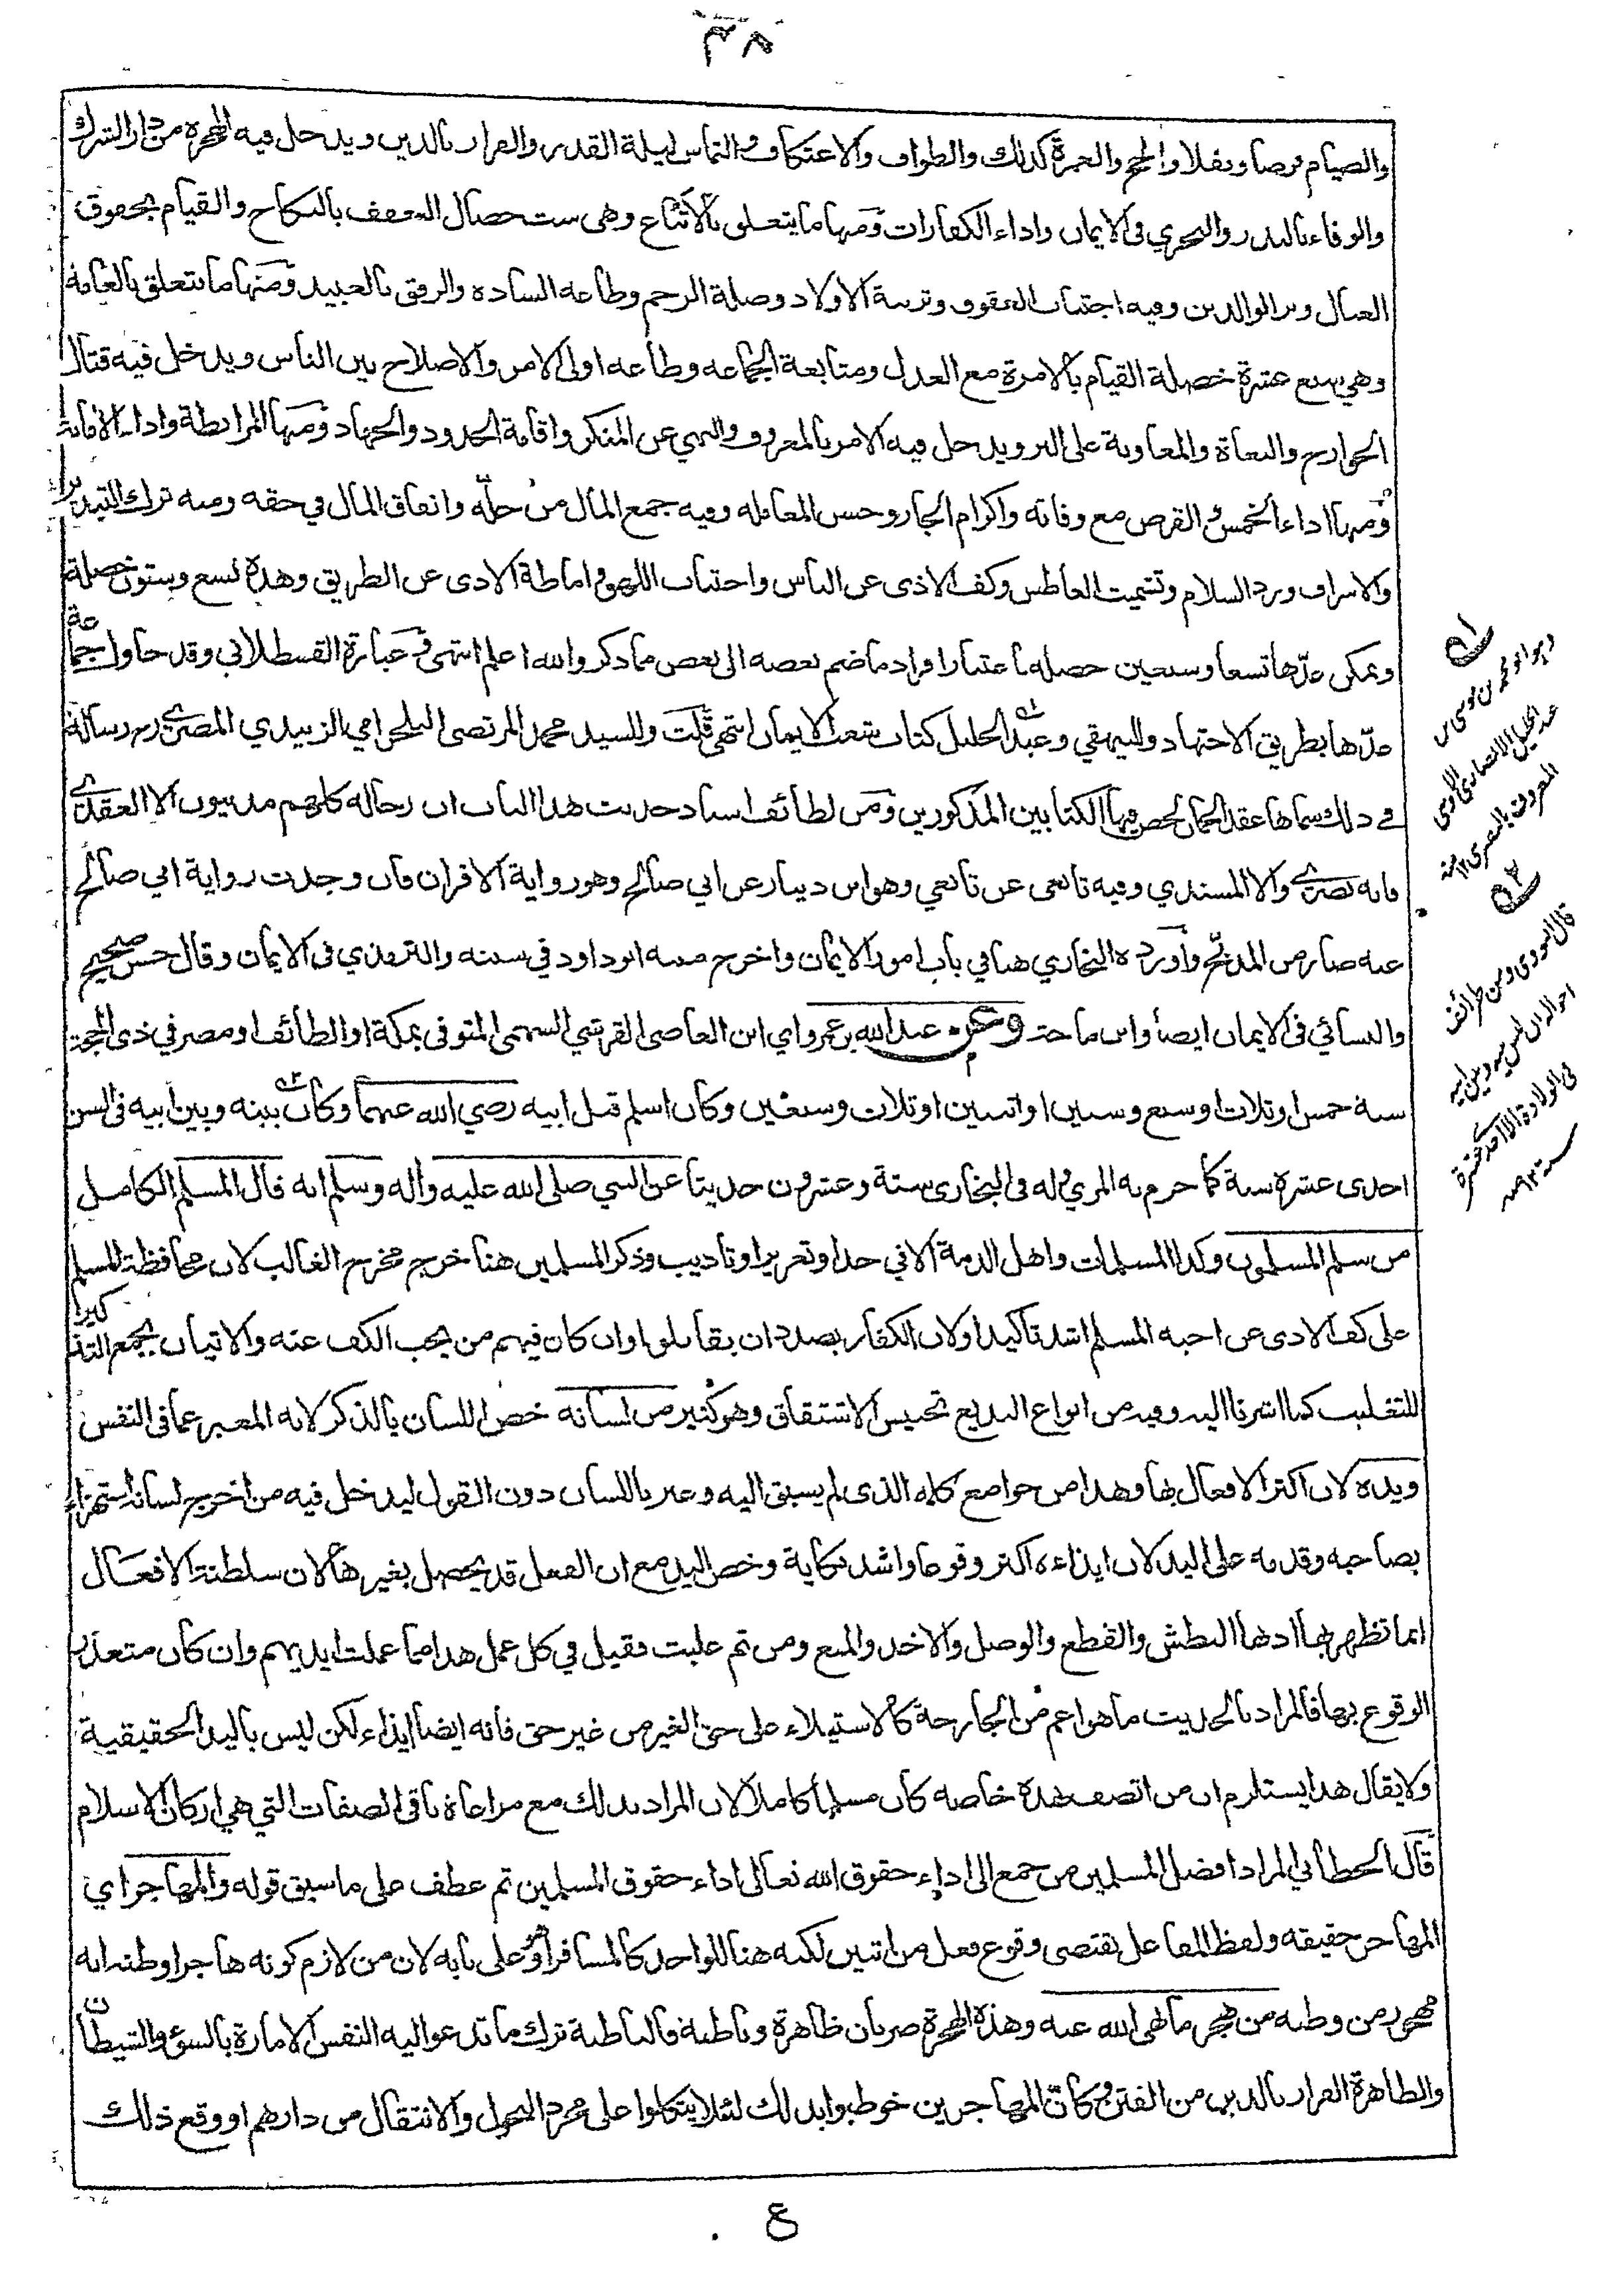 ٣٨
والصيام فرضا ونفلا والحج والعمرة كذلك والطواف والاعتكاف والتماس ليلة القدر والفرار بالدين ويدخل فيه الهجرة من دار الشرك
والوفاء بالنذر والتحري في الايمان واداء الكفارات ومنها ما يتعلق بالاتباع وهي ست خصال التعفف بالنكاح والقيام بحقوق
العيال وبر الوالدين وفيه اجتناب العقوق وتربية الاولاد وصلة الرحم وطاعه الساده والرفق بالعبيد ومنها ما يتعلق بالعامة
وهي سبع عشرة خصلة القيام بالامرة مع العدل ومتابعة الجماعه وطاعه اولى الامر والاصلاح بين الناس ويدخل فيه قتال
الخوارج والبغاة والمعاونة على البر ويدخل فيه الامر بالمعروف والنهي عن المنكر واقامة الحدود والجهاد ومنها المرابطة واداء الامانة
ومنها اداء الخمس والقرض مع وفائه واكرام الجار وحسن المعامله وفيه جمع المال من حلّه وانفاق المال في حقه ومنه ترك التبذير
والاسراف ورد السلام وتشميت العاطس وكف الاذى عن الناس واجتناب اللهو واماطة الاذى عن الطريق وهذه تسع وستون خصلة
ويمكن عدّها تسعا وسبعين خصله باعتبار افراد ما ضم بعضه الى بعض مما ذكر والله اعلم انتهى وعبارة القسطلاني وقد حاول جماعة
عدّها بطريق الاجتهاد والبيهقي وعبد الجليل كتاب شعب الايمان انتهى قلت وللسيد محمد المرتضى البلجرامي الزبيدي المصري رح رسالة
في ذلك سماها عقد الجمان لخص فيها الكتابين المذكورين ومن لطائف اسناد حديث هذا الباب ان رجاله كلهم مدنيون الا العقدي
فانه بصري والا المسندي وفيه تابعي عن تابعي وهو ابن دينار عن ابي صالح وهو رواية الاقران فان وجدت رواية ابي صالح
عنه صار من المدبّج وأورده البخاري هنا في باب امور الايمان واخرجه مسلم ابو داود في سننه والترمذي في الايمان وقال حسن صحيح
والنسائي في الايمان ايضا وابن ماجة وعن عبد الله بن عمرو اي ابن العاصي القرشي السهمي المتوفى بمكة او الطائف او مصر في ذي الحجة
سنة خمس او ثلاث او سبع وستين او اثنين او ثلاث وسبعين وكان اسلم قبل ابيه رضي الله عنهما وكان بينه وبين ابيه في السن
احدى عشرة سنة كما جزم به المزي وله في البخاري ستة وعشرون حديثا عن النبي صلى الله عليه وآله وسلم انه قال المسلم الكامل
من سلم المسلمون وكذا المسلمات واهل الذمة الا في حد او تعزير او تاديب وذكر المسلمين هنا خرج مخرج الغالب لان محافظة المسلم
على كف الاذى عن اخيه المسلم اشد تأكيدا ولان الكفار بصدد ان يقاتلوا وان كان فيهم من يجب الكف عنه والاتيان بجمع التذكير
للتغليب كما اشرنا اليه وفيه من انواع البديع تجنيس الاشتقاق وهو كثير من لسانه خص اللسان بالذكر لانه المعبر عما في النفس
ويده لان اكثر الافعال بها وهذا من جوامع كلمه الذى لم يسبق اليه وعبر باللسان دون القول ليدخل فيه من اخرج لسانه استهزاء
بصاحبه وقدمه على اليد لان ايذاءه اكثر وقوعا واشد نكاية وخص اليد مع ان الفعل قد يحصل بغيرها لان سلطنة الافعال
انما تظهر بها اذ بها البطش والقطع والوصل والاخذ والمنع ومن ثم غلبت فقيل في كل عمل هذا مما عملت ايديهم وان كان متعذر
الوقوع بها فالمراد بالحديث ما هو اعم من الجارحة كالاستيلاء على حق الغير من غير حق فانه ايضا ايذاء لكن ليس باليد الحقيقية
ولا يقال هذا يستلزم ان من اتصف بهذه خاصه كان مسلما كاملا لان المراد بذلك مع مراعاة باقي الصفات التي هي اركان الاسلام
قال الخطابي المراد افضل المسلمين من جمع الى اداء حقوق الله تعالى اداء حقوق المسلمين ثم عطف على ما سبق قوله والمهاجر اي
المهاجر حقيقه ولفظ المفاعل يقتضى وقوع فعل من اثنين لكنه هنا للواحد كالمسافر او على بابه لان من لازم كونه هاجرا وطنه انه
مهجور من وطنه من هجر ما نهى الله عنه وهذه الهجرة ضربان ظاهرة وباطنة فالباطنة ترك ما تدعو اليه النفس الامارة بالسوء والشيطان
والظاهرة الفرار بالدين من الفتن وكأنّ المهاجرين خوطبوا بذلك لئلا يتكلوا على مجرد التحول والانتقال من دارهم او وقع ذلك
١
وهو ابو محمد بن موسى بن
عبد الجليل الانصاري الاوسي
المعروف بالقصري ١٢ منه
٢
قال النووي ومن طرائف
احواله ان ليس بينه وبين ابيه
في الولادة الا احدى عشرة
سنة ١٢ منه
ع